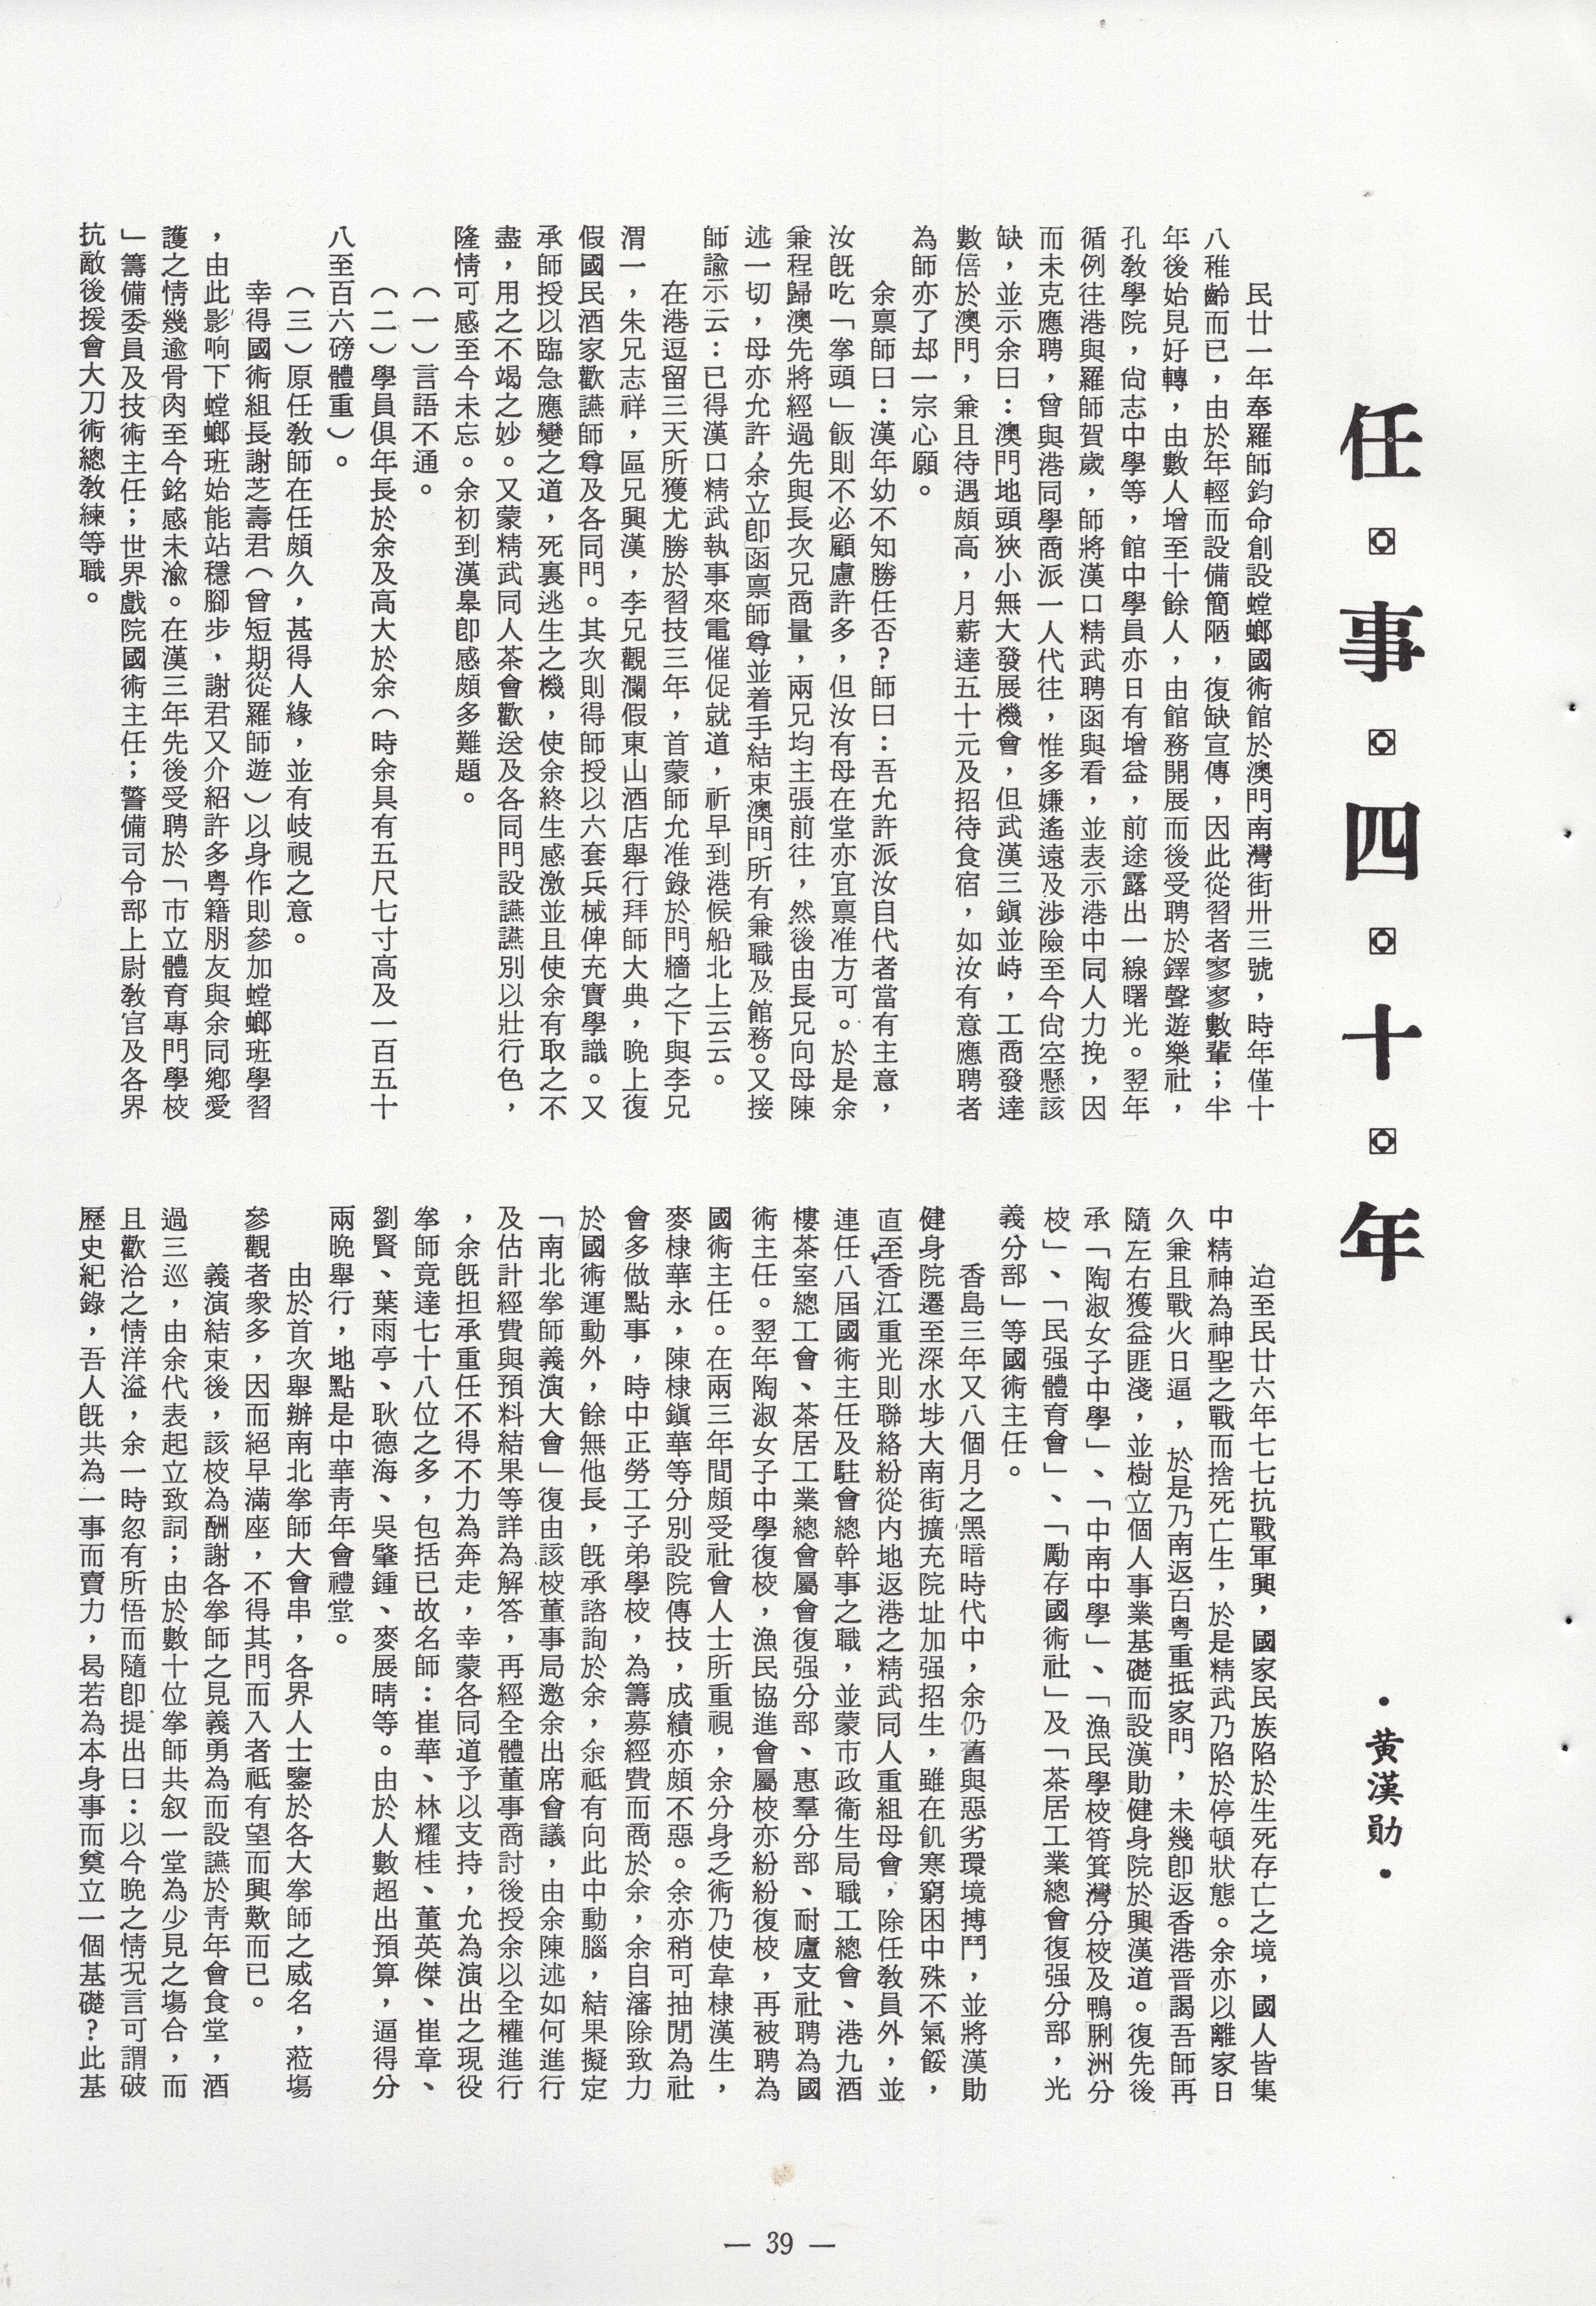 任事四十年
・黃漢勛・
民廿一年奉羅師鈞命創設螳螂國術館於澳門南灣街卅三號，時年僅十
八稚齡而已，由於年輕而設備簡陋，復缺宣傳，因此從習者寥寥數輩；半
年後始見好轉，由數人增至十餘人，由館務開展而後受聘於鐸聲遊樂社，
孔敎學院，尙志中學等，館中學員亦日有增益，前途露出一線曙光。翌年
循例往港與羅師賀歲，師將漢口精武聘函與看，並表示港中同人力挽，因
而未克應聘，曾與港同學商派一人代往，惟多嫌遙遠及涉險至今尙空懸該
缺，並示余曰：澳門地頭狹小無大發展機會，但武漢三鎭並峙，工商發達
數倍於澳門，兼且待遇頗高，月薪達五十元及招待食宿，如汝有意應聘者
為師亦了却一宗心願。
余禀師曰：漢年幼不知勝任否？師曰：吾允許派汝自代者當有主意，
汝旣吃「拳頭」飯則不必顧慮許多，但汝有母在堂亦宜禀准方可。於是余
兼程歸澳先將經過先與長次兄商量，兩兄均主張前往，然後由長兄向母陳
述一切，母亦允許，余立卽函禀師尊並着手結束澳門所有兼職及館務。又接
師諭示云：已得漢口精武執事來電催促就道，祈早到港候船北上云云。
在港逗留三天所獲尤勝於習技三年，首蒙師允准錄於門牆之下與李兄
渭一，朱兄志祥，區兄興漢，李兄觀瀾假東山酒店舉行拜師大典，晚上復
假國民酒家歡讌師尊及各同門。其次則得師授以六套兵械俾充實學識。又
承師授以臨急應變之道，死裏逃生之機，使余終生感激並且使余有取之不
盡，用之不竭之妙。又蒙精武同人茶會歡送及各同門設讌讌別以壯行色，
隆情可感至今未忘。余初到漢皋卽感頗多難題。
（一）言語不通。
（二）學員俱年長於余及高大於余（時余具有五尺七寸高及一百五十
八至百六磅體重）。
（三）原任敎師在任頗久，甚得人緣，並有岐視之意。
幸得國術組長謝芝壽君（曾短期從羅師遊）以身作則參加螳螂班學習
，由此影响下螳螂班始能站穩腳步，謝君又介紹許多粵籍朋友與余同鄉愛
護之情幾逾骨肉至今銘感未渝。在漢三年先後受聘於「市立體育專門學校
」籌備委員及技術主任；世界戲院國術主任；警備司令部上尉敎官及各界
抗敵後援會大刀術總敎練等職。
迨至民廿六年七七抗戰軍興，國家民族陷於生死存亡之境，國人皆集
中精神為神聖之戰而捨死亡生，於是精武乃陷於停頓狀態。余亦以離家日
久兼且戰火日逼，於是乃南返百粵重抵家門，未幾卽返香港晋謁吾師再
隨左右獲益匪淺，並樹立個人事業基礎而設漢勛健身院於興漢道。復先後
承「陶淑女子中學」、「中南中學」、「漁民學校筲箕灣分校及鴨脷洲分
校」、「民强體育會」、「勵存國術社」及「茶居工業總會復强分部，光
義分部」等國術主任。
香島三年又八個月之黑暗時代中，余仍舊與惡劣環境搏鬥，並將漢勛
健身院遷至深水埗大南街擴充院址加强招生，雖在飢寒窮困中殊不氣餒，
直至香江重光則聯絡紛從內地返港之精武同人重組母會，除任敎員外，並
連任八屆國術主任及駐會總幹事之職，並蒙市政衞生局職工總會、港九酒
樓茶室總工會、茶居工業總會屬會復强分部、惠羣分部、耐廬支社聘為國
術主任。翌年陶淑女子中學復校，漁民協進會屬校亦紛紛復校，再被聘為
國術主任。在兩三年間頗受社會人士所重視，余分身乏術乃使韋棣漢生，
麥棣華永，陳棣鎭華等分別設院傳技，成績亦頗不惡。余亦稍可抽閒為社
會多做點事，時中正勞工子弟學校，為籌募經費而商於余，余自審除致力
於國術運動外，餘無他長，旣承諮詢於余，余祇有向此中動腦，結果擬定
「南北拳師義演大會」復由該校董事局邀余出席會議，由余陳述如何進行
及估計經費與預料結果等詳為解答，再經全體董事商討後授余以全權進行
，余旣担承重任不得不力為奔走，幸蒙各同道予以支持，允為演出之現役
拳師竟達七十八位之多，包括已故名師：崔華、林耀桂、董英傑、崔章、
劉賢、葉雨亭、耿德海、吳肇鍾、麥展晴等。由於人數超出預算，逼得分
兩晚舉行，地點是中華靑年會禮堂。
由於首次舉辦南北拳師大會串，各界人士鑒於各大拳師之威名，蒞塲
參觀者衆多，因而絕早滿座，不得其門而入者祇有望而興歎而已。
義演結束後，該校為酬謝各拳師之見義勇為而設讌於靑年會食堂，酒
過三巡，由余代表起立致詞；由於數十位拳師共叙一堂為少見之塲合，而
且歡洽之情洋溢，余一時忽有所悟而隨卽提出曰：以今晚之情況言可謂破
歷史紀錄，吾人旣共為一事而賣力，曷若為本身事而奠立一個基礎？此基
— 39 —